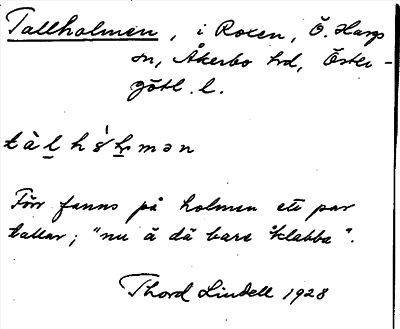 Tallholmen, i Roxen, Ö. Hargs
sn, Åkerbo hd, Öster-
götl. l.
Förr fanns på holmen ett par
tallar; "nu ä dä bare klabba".
Thord Lindell 1928